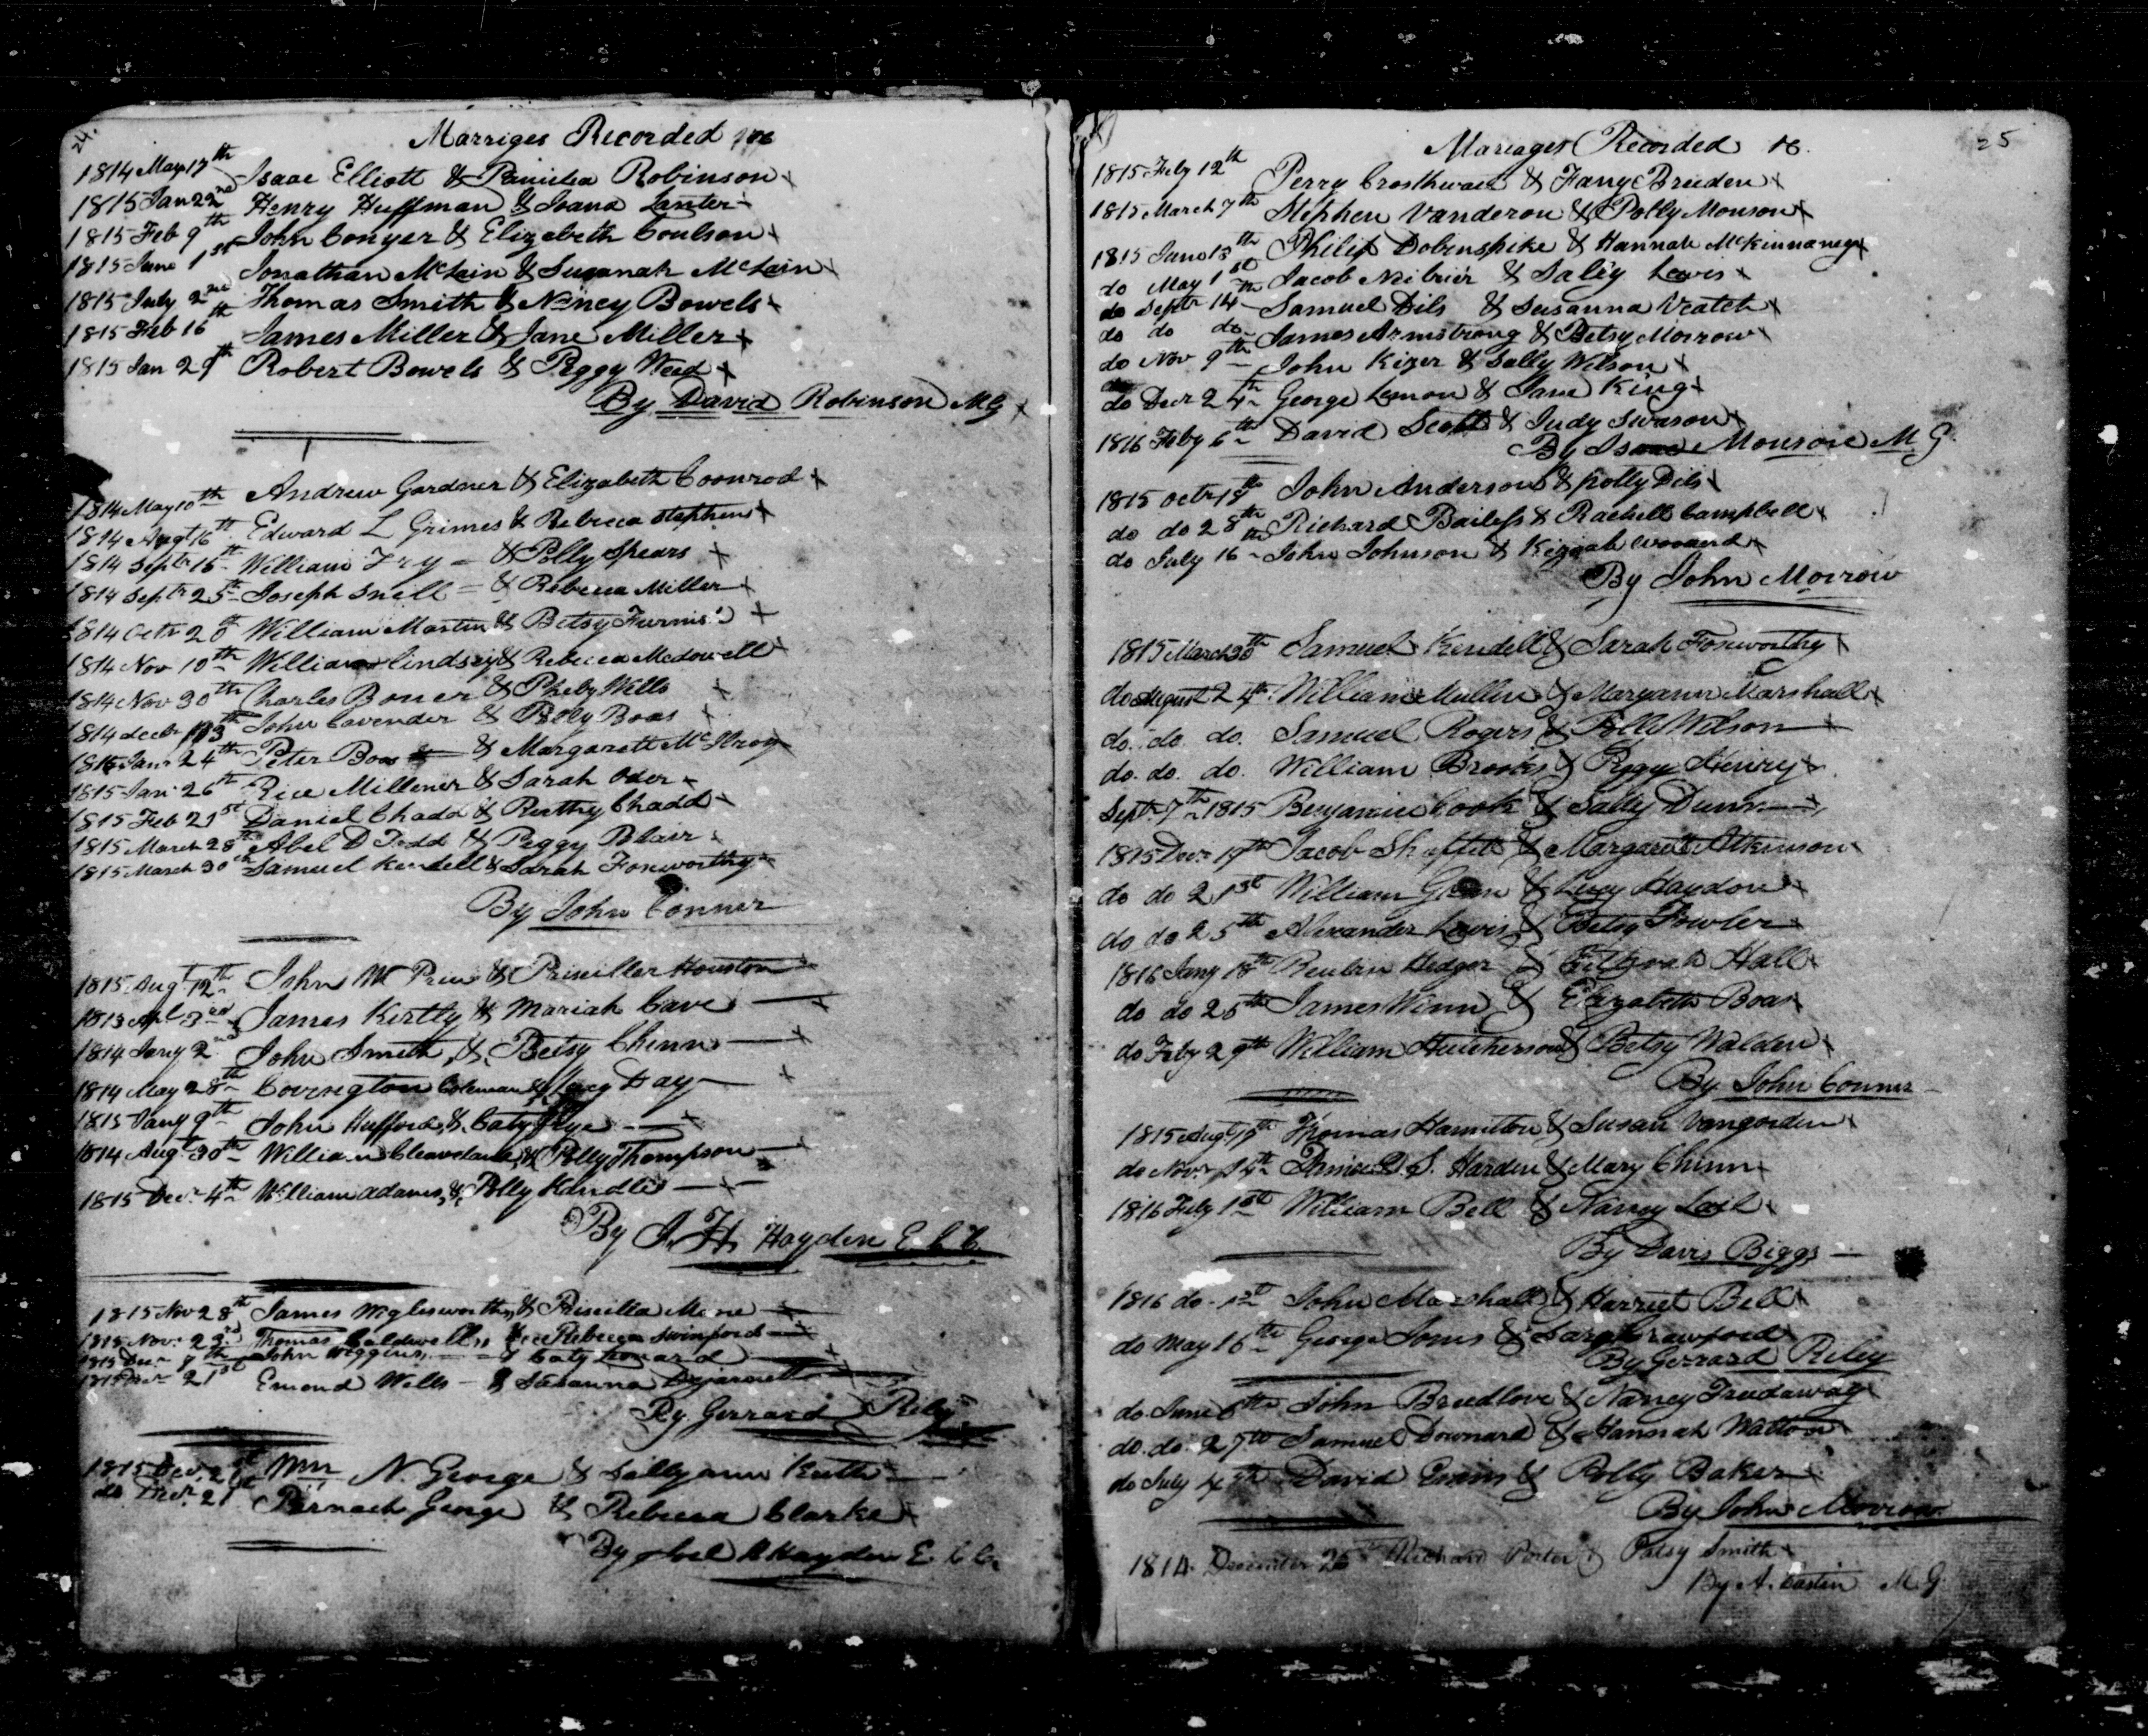 24.
Marriges Recorded
1814 May 17th Isaac Elliott & Robinson
1815 Jan 22nd Henry Huffman & Ioana Lanter
1815 Feb 9th John Conyer & Elizabeth Coulson
1815 June 1st Jonathan McLain & Susanah McLain
1815 July 2nd Thomas Smith & Nancy Bowels
1815 Feb 16th James Miller & Jane Miller
1815 Jan 29th Robert Bowels & Peggy Weed
By David Robinson M G
1814 May 10th Andrew Gardner & Elizabeth Coonrod
1814 Augt 16th Edward L Grimes & Rebecca Stephens
1814 Septr 15th William Fry = & Polly Spears
1814 Septr 25th Joseph Snell = & Rebecca Miller
1814 Octr 20th William Martin & Betsy
1814 Nov 10th William Lindsay & Rebecca Mcdowell
1814 Nov 30th Charles Boner & Pheby Wells
1814 decbr John Cavender & Polly Boas
Jan 24th Peter Boas & Margarett McIlroy
1815 Jan 26th Rice Millener & Sarah Oder
1815 Feb 21st Daniel Chadd & Chadd
1815 March 28th Abel D Todd & Peggy Blair
1815 March 30th Samuel Kendell & Sarah Foxworthy
By John Conner
1815 Augt 12th John W & Prisciller Houston
1813 Apl 3rd James Kertly & Mariah Cave
1814 Jany 2nd John Smith & Betsy Chinn
1814 May 28th Covington Coleman & Day
1815 Jany 9th John Hufford & Caty Frye
1814 Augt 30th William Cleaveland & Polly Thompson
1815 Decr 4th William Adams & Polly Kandler
By J. H Hayden E. C C.
1815 Nov 28th James Wiglesworth & Priscilla
1815 Nov. 23rd Thomas Caldwell & Rebecca Swinford
1815 Decr John Wiggins & Caty Leonard
Decr 21st Emond Wells - & Susanna Dejarnett
By Gerrard Riley
1815 Decr Wm N. George & Sallyann Keith
do Decr 21st Pernach George & Rebecca Clarke
By Joel H Hayden E. C C.
25
Mariages Recorded
1815 Feby 12th Perry Crosthwait & Fany Breeden
1815 March 7th Stephen Vanderen & Polly Monson
1815 June 13th Philip Dobinspike & Hannah McKinnaney
do May 1st Jacob & Saley Lewis
do Septr 14th Samuel Dils & Susanna Veatch
do do do James Armstrong & Betsy Morrow
do Nov 9th John Kizer & Sally Wilson
do Decr 24th George Lemon & Jane King
1816 Feby 6th David Scott & Judy Swason
By Isaac Monson M. G.
1815 octr 18th John Anderson & polly Dils
do do 28th Richard Bailess & Rachell Campbell
do July 16th John Johnson & Keziah
By John Morrow
1815 March 30th Samuel Kendell & Sarah Foxworthy
do August 24th William Mullin & Maryann Marshall
do. do. do. Samuel Rogers & Polly Wilson
do. do. do. William & Peggy Henry
Sept. 7th 1815 Benjamin Cook & Sally Dunn
1815 Decr 19th Jacob & Margarett Atkinson
do do 21st William & Lucy Haydon
do do 25th Alexander Lewis & Betsy Fowler
1816 Jany 18th Reubin Hedger & Hall
do do 25th James Winn & Elizabeth Boas
do Feby 29th William Hutcherson & Betsy Walden
By John Conner
1815 Augt 10th Thomas Hamilton & Susan Vangorden
do Novr D. S. Harden & Mary Chinn
1816 Feby 1st William Bell & Nancy Lail
By Davis Biggs
1816 do. 1st John Marshall & Harriet Bell
do May 16th George Jones & Crawford
By Gerrard Riley
do June 6th John Breedlove & Nancy Treadaway
do. do 27th Samuel Downard & Hannah Walton
do July 4th David Evans & Polly Baker
By John Morrow
1814. December 25th Richard Porter & Patsy Smith
By A. M. G.